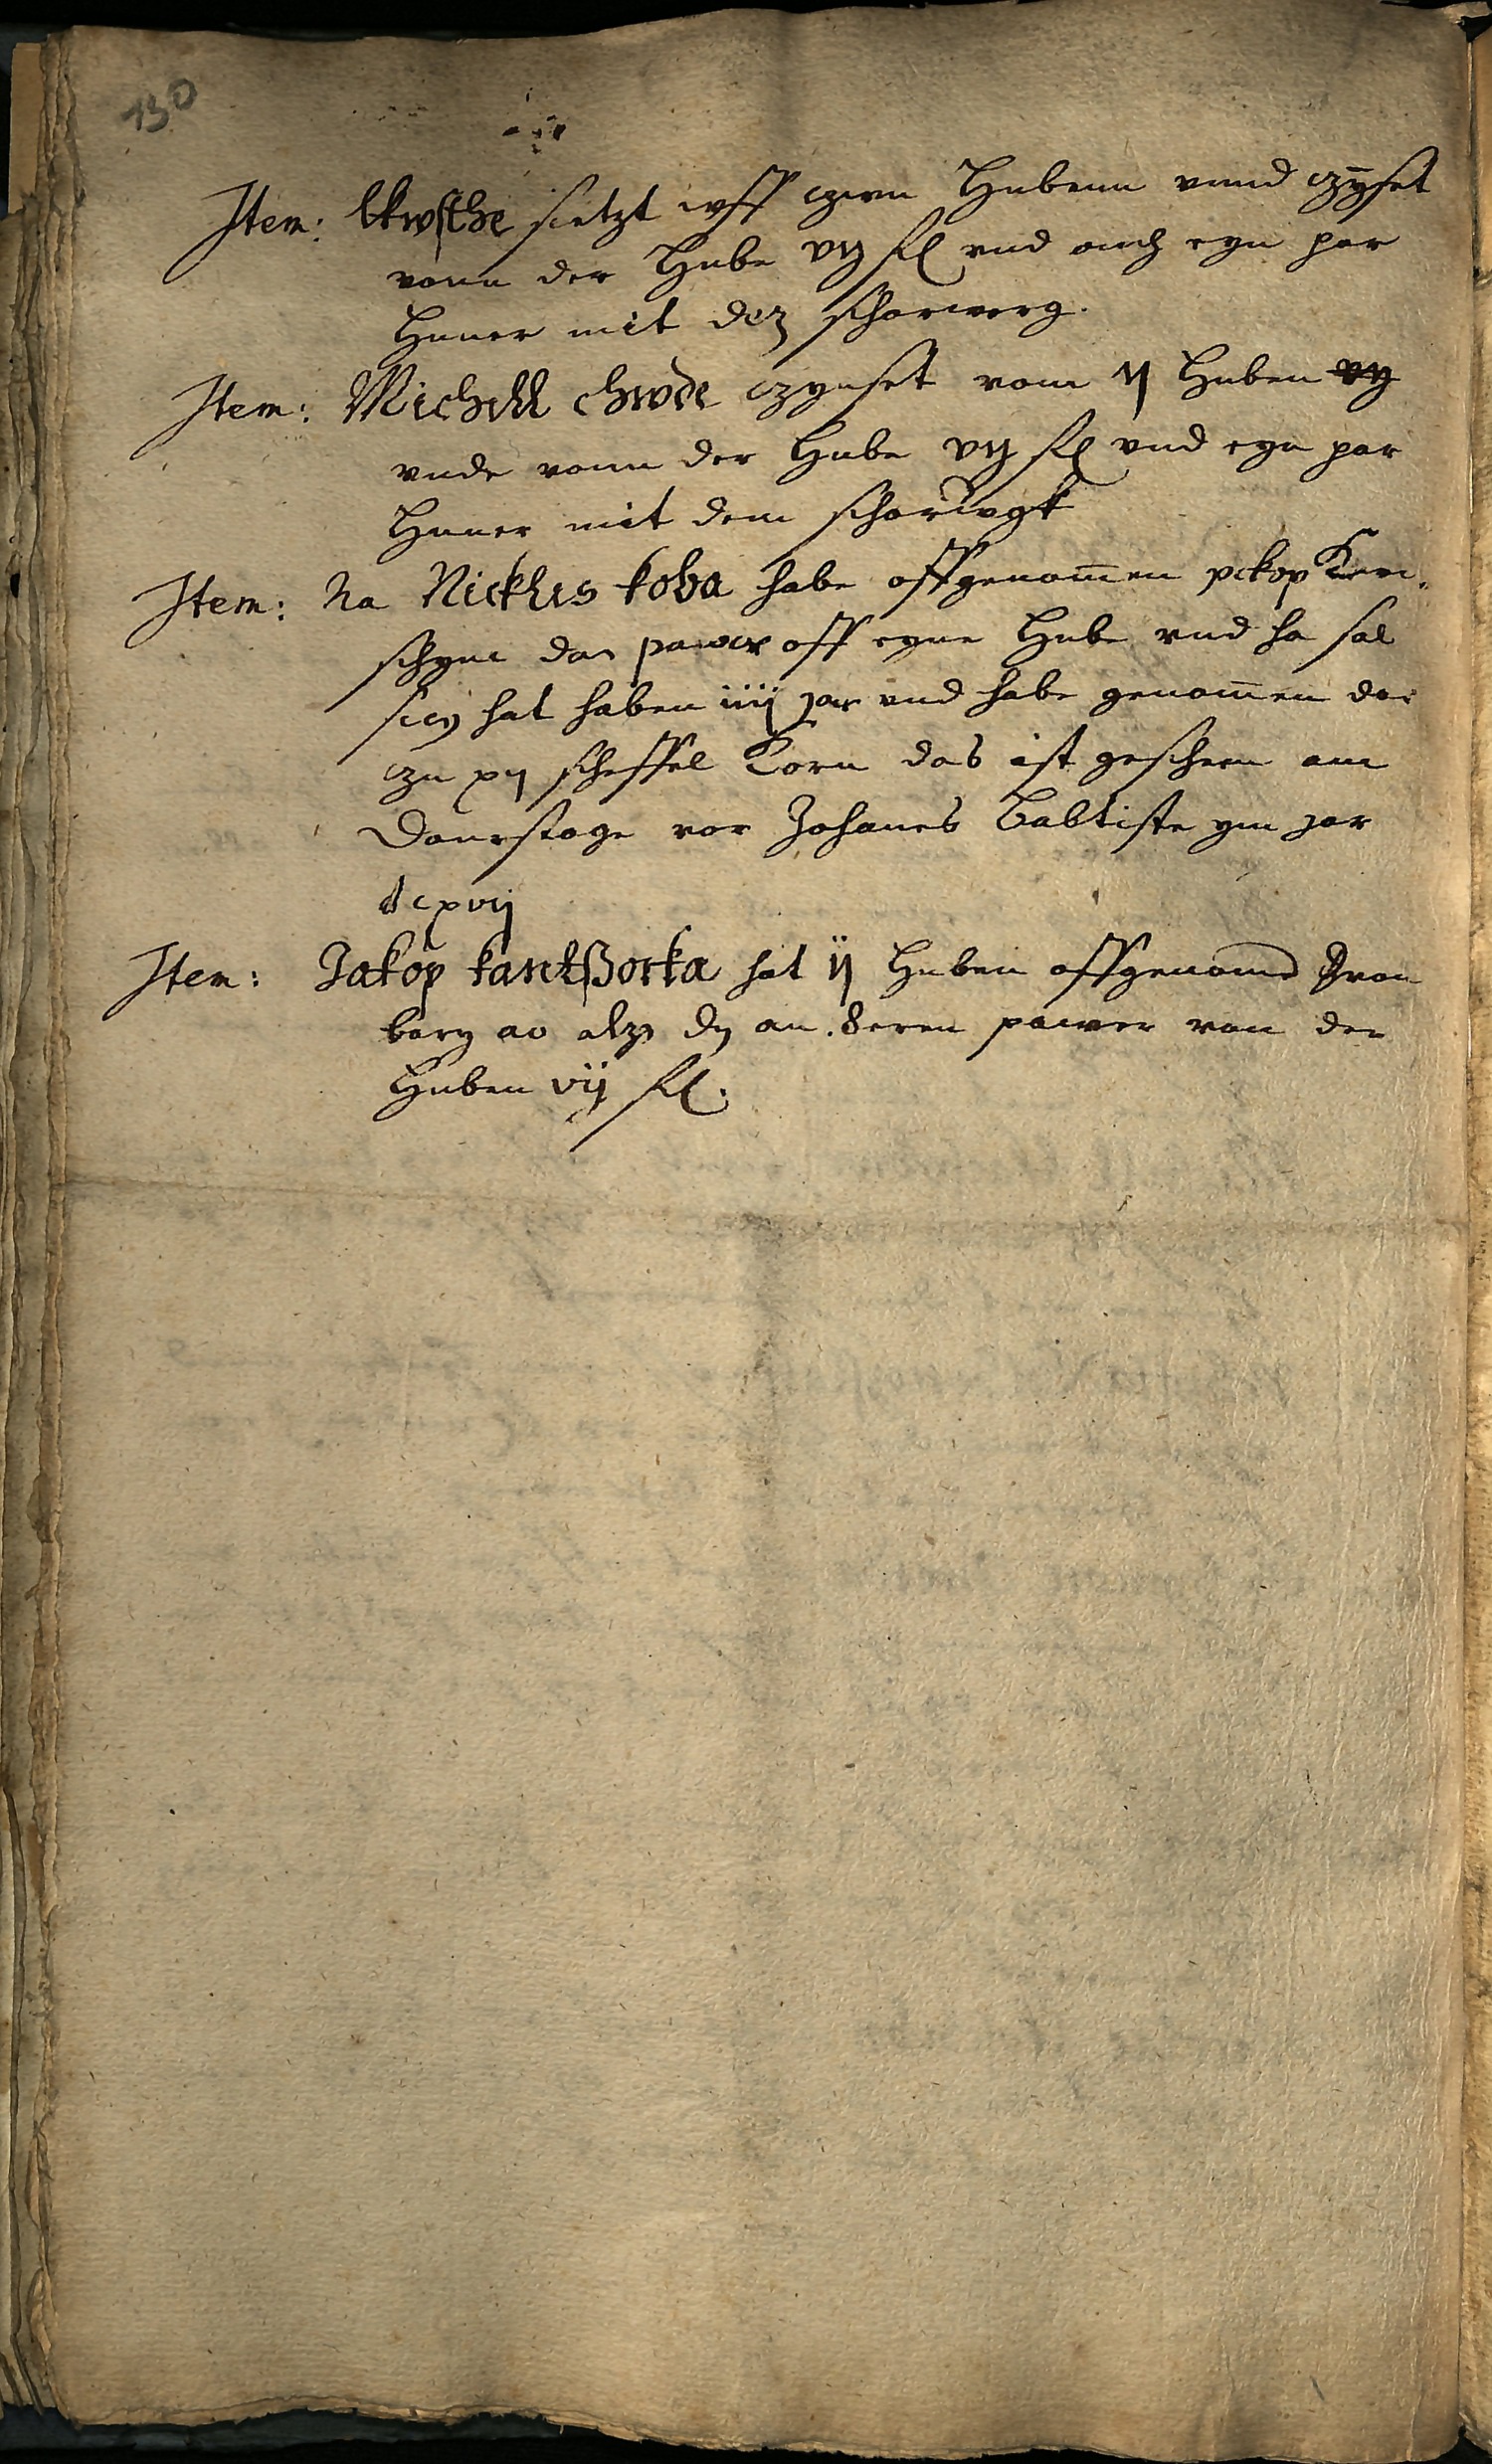 130
Item: lkwsthe sietzt wff czwu Hubenn vnnd czÿset
vonn der Hube vij fl vnd auch eyn par
Huner mit dez scharwerg.
Item: Michell chwde czynset vom ij Huben
vnde vonn der Hube vij fl vnd eyn par
Huner mit dem scharwgk
Item: Na Nickles koba habe offgenomen pckop
schyne das pawer off eyne Hube vnd ha sal
hat haben iiij jar vnd habe genomen dar
czu xij scheffel Korn das ist geschen am
Donrstage vor Johanes Babtiste ym jar
dcxvij
Item: Jakop kantßorka hat ij Huben offgenomē
alzo dy an.deren pawer von der
Huben vij fl.